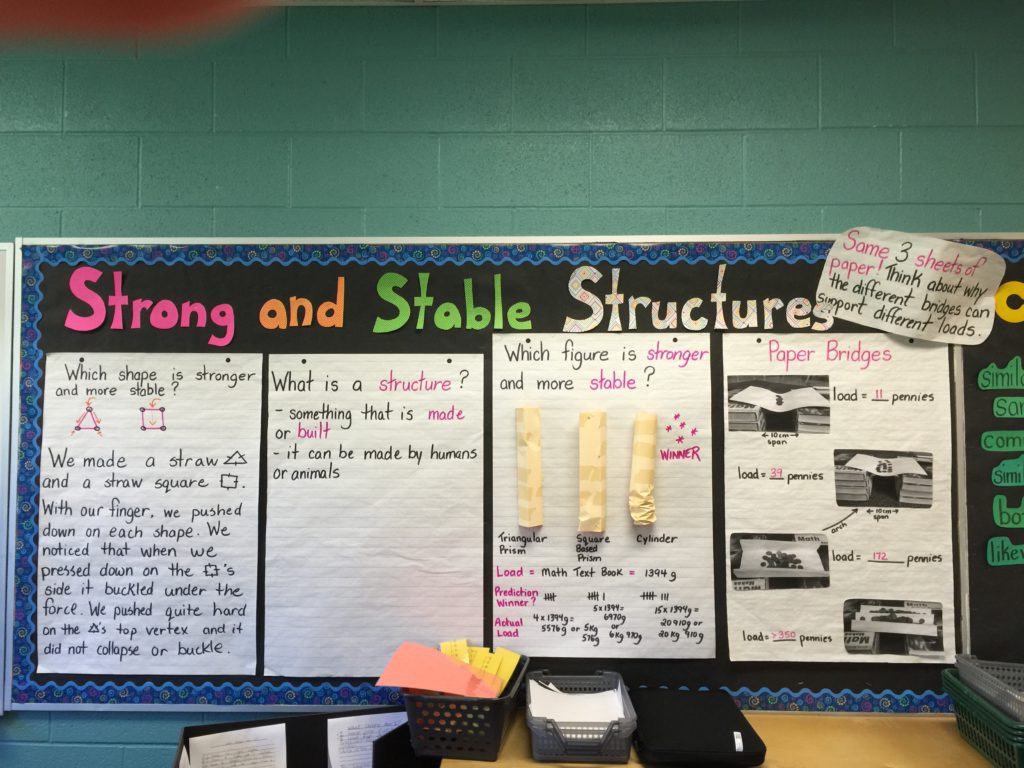 Strong and Stable Structures
Same 3 sheets of
paper! Think about why
the different bridges can
support different loads.
Which shape is stronger
and more stable?
We made a straw
and a straw square
With our finger, we pushed
down on each shape. We
noticed that when we
pressed down on the 's
side it buckled under the
force. We pushed quite hard
on the 's top vertex and it
did not collapse or buckle.
What is a structure?
- something that is made
or built
- it can be made by humans
or animals
Which figure is stronger
and more stable?
WINNER
Triangular
Prism
Square
Based
Prism
Cylinder
Load = Math Text Book = 1394 g
Prediction
Winner?
Actual
Load
4 x 1394g =
5576g or 5kg
576g
5 x 1394=
6970g
or
6kg 970g
15 x 1394g =
20 910g or
20 kg 910g
Paper Bridges
load = 11 pennies
10cm
span
load = 39 pennies
10cm
span
arch
Math
load = 172 pennies
Math
load = >350 pennies
simila
com
simil
likew